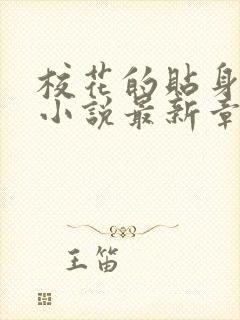 校花的貼身
小說最新章
王笛